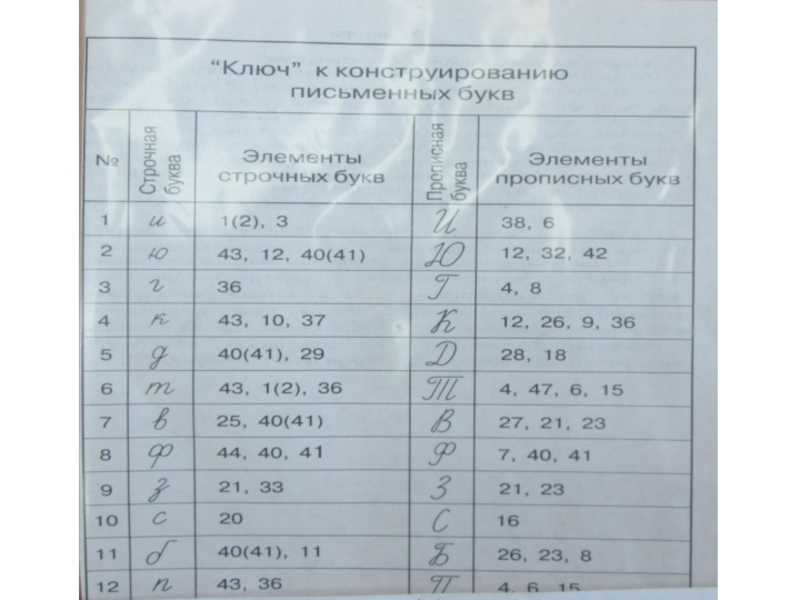 "Ключ" к конструированию
письменных букв
№ Строчная буква Элементы строчных букв Прописная буква Элементы прописных букв
1 и 1(2), 3 И 38, 6
2 ю 43, 12, 40(41) Ю 12, 32, 42
3 г 36 Г 4, 8
4 к 43, 10, 37 К 12, 26, 9, 36
5 д 40(41), 29 Д 28, 18
6 т 43, 1(2), 36 Т 4, 47, 6, 15
7 в 25, 40(41) В 27, 21, 23
8 ф 44, 40, 41 Ф 7, 40, 41
9 з 21, 33 З 21, 23
10 с 20 С 16
11 б 40(41), 11 Б 26, 23, 8
12 п 43, 36 П 4, 6, 15